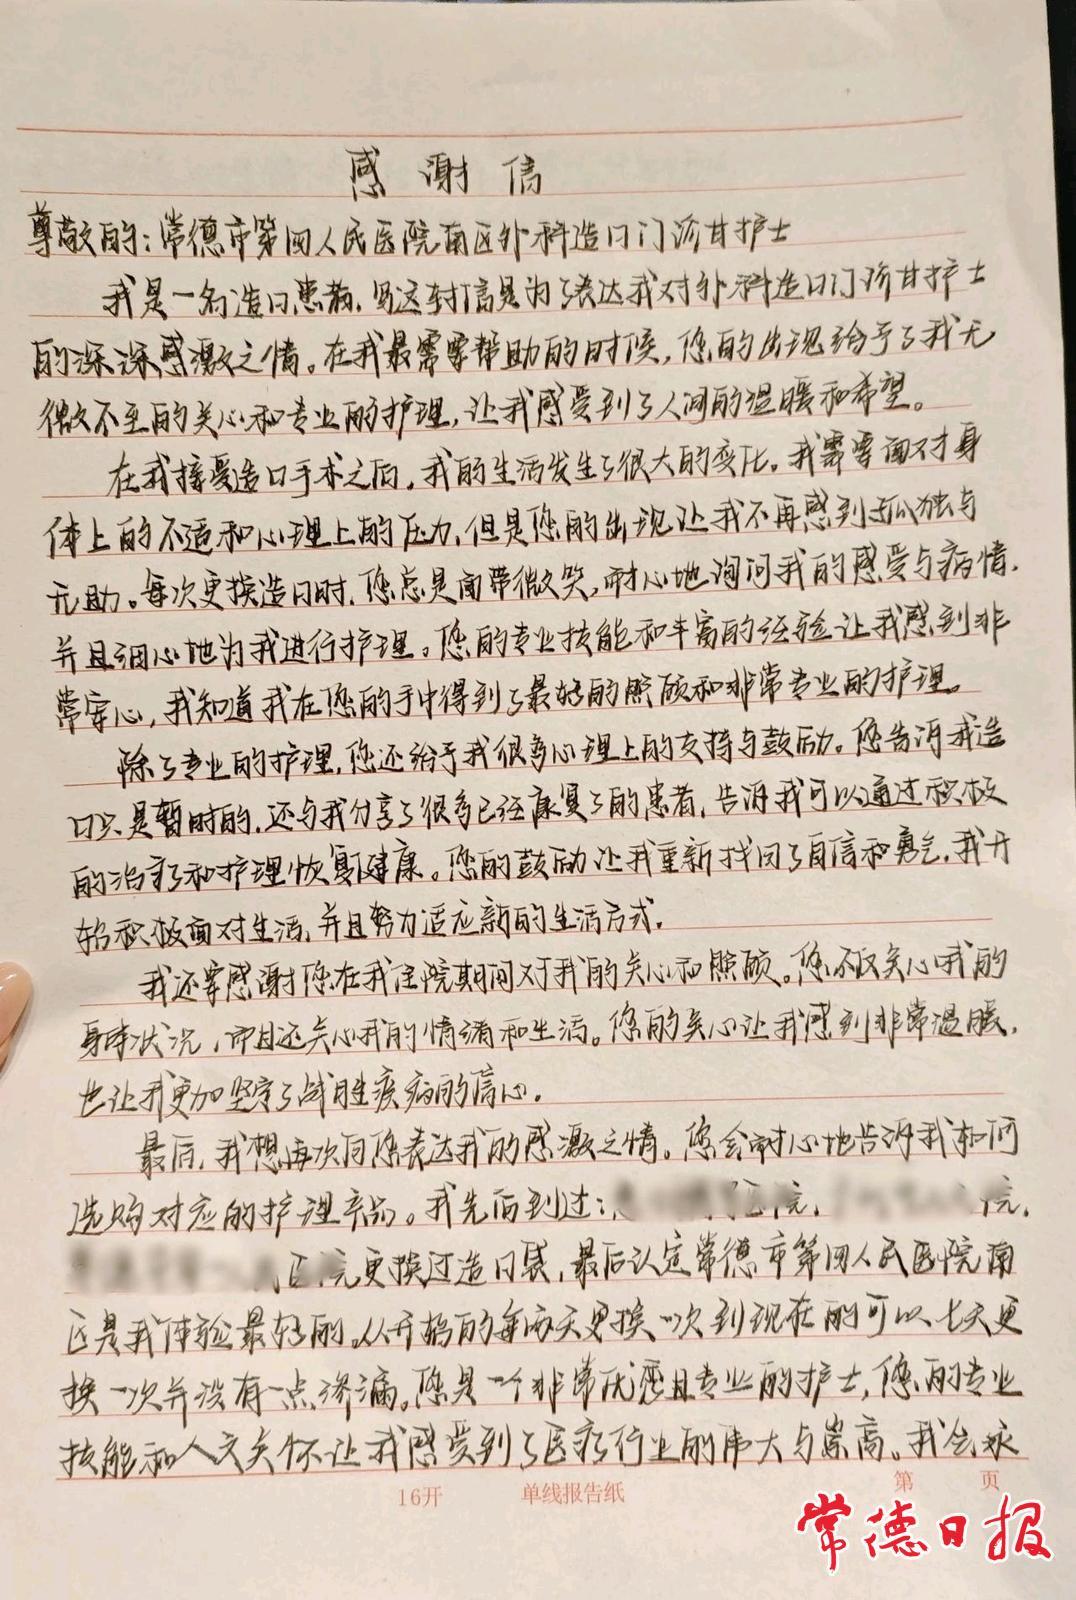 感谢信
尊敬的：常德市第四人民医院南区外科造口门诊甘护士
我是一名造口患者，写这封信是为了表达我对外科造口门诊甘护士
的深深感激之情。在我最需要帮助的时候，您的出现给予了我无
微不至的关心和专业的护理，让我感受到了人间的温暖和希望。
在我接受造口手术之后，我的生活发生了很大的变化。我需要面对身
体上的不适和心理上的压力，但是您的出现让我不再感到孤独与
无助。每次更换造口时，您总是面带微笑，耐心地询问我的感受与病情，
并且细心地为我进行护理。您的专业技能和丰富的经验让我感到非
常安心，我知道我在您的手中得到了最好的照顾和非常专业的护理。
除了专业的护理，您还给予我很多心理上的支持与鼓励。您告诉我造
口只是暂时的，还与我分享了很多已经康复了的患者，告诉我可以通过积极
的治疗和护理恢复健康。您的鼓励让我重新找回了自信和勇气，我开
始积极面对生活，并且努力适应新的生活方式。
我还要感谢您在我住院期间对我的关心和照顾。您不仅关心我的
身体状况，而且还关心我的情绪和生活。您的关心让我感到非常温暖，
也让我更加坚定了战胜疾病的信心。
最后，我想再次向您表达我的感激之情。您会耐心地告诉我如何
选购对应的护理产品。我先后到过：院，院，
医院更换过造口袋，最后认定常德市第四人民医院南
区是我体验最好的。从开始的每两天更换一次到现在的可以七天更
换一次并没有一点渗漏。您是一个非常优秀且专业的护士，您的专业
技能和人文关怀让我感受到了医疗行业的伟大与崇高。我会永
16开 单线报告纸 第 页
常德日报